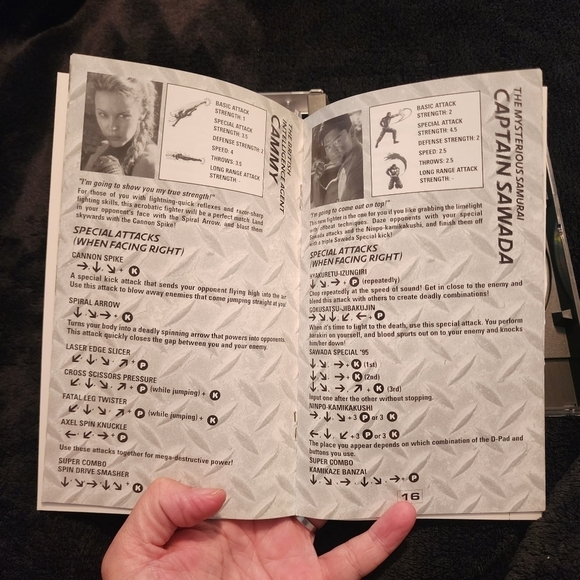 BASIC ATTACK
STRENGTH: 1
SPECIAL ATTACK
STRENGTH: 3.5
DEFENSE STRENGTH: 2
SPEED: 4
THROWS: 3.5
LONG RANGE ATTACK
STRENGTH: -
THE BRITISH
INTELLIGENCE AGENT
CAMMY
"I'm going to show you my true strength!"
For those of you with lightning-quick reflexes and razor-sharp
fighting skills, this acrobatic fighter will be a perfect match. Land
in your opponent's face with the Spiral Arrow, and blast them
skywards with the Cannon Spike!
SPECIAL ATTACKS
(WHEN FACING RIGHT)
CANNON SPIKE
→ ↓ ↘ + K
A special kick attack that sends your opponent flying high into the air
Use this attack to blow away enemies that come jumping straight at you
SPIRAL ARROW
↓ ↘ → + K
Turns your body into a deadly spinning arrow that powers into opponents.
This attack quickly closes the gap between you and your enemy.
LASER EDGE SLICER
↙ ↓ ↘ ↗ + P
CROSS SCISSORS PRESSURE
↙ ↓ ↘ ↗ + P (while jumping) + K
FATAL LEG TWISTER
↙ ↓ ↘ ↗ + P (while jumping) + K
AXEL SPIN KNUCKLE
← ↙ ↗ → + P
Use these attacks together for mega-destructive power!
SUPER COMBO
SPIN DRIVE SMASHER
↓ ↘ → ↓ ↘ + K
BASIC ATTACK
STRENGTH: 2
SPECIAL ATTACK
STRENGTH: 4.5
DEFENSE STRENGTH: 2
SPEED: 2.5
THROWS: 2.5
LONG RANGE ATTACK
STRENGTH: -
THE MYSTERIOUS SAMURAI
CAPTAIN SAWADA
"I'm going to come out on top!"
This new fighter is the one for you if you like grabbing the limelight
with offbeat techniques. Daze opponents with your special
Sawada attacks and the Ninpo-kamikakushi, and finish them off
with a triple Sawada Special kick!
SPECIAL ATTACKS
(WHEN FACING RIGHT)
HYAKURETU-IZUNGIRI
↓ ↘ → + P (repeatedly)
Chop repeatedly at the speed of sound! Get in close to the enemy and
blend this attack with others to create deadly combinations!
GOKUSATSU-JIBAKUJIN
→ ↘ ↓ ↙ ← + P
When it's time to fight to the death, use this special attack. You perform
harakiri on yourself, and blood spurts out on to your enemy and knocks
him down!
SAWADA SPECIAL '95
↓ ↘ → + K (1st)
↓ ↘ → + K (2nd)
↓ ↘ → ↗ + K (3rd)
Input one after the other without stopping.
NINPO-KAMIKAKUSHI
→ ↓ ↘ + 3 P or 3 K
← ↓ ↙ + 3 P or 3 K
The place you appear depends on which combination of the D-Pad and
buttons you use.
SUPER COMBO
KAMIKAZE BANZAI
↓ ↘ → ↓ ↘ → + P
16